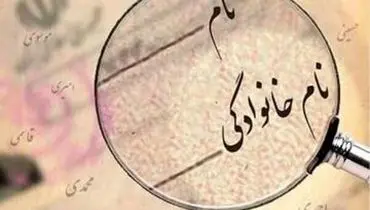 نام
حسینی
موسوی
نام خانوادگی
امیری
قاسمی
محمدی